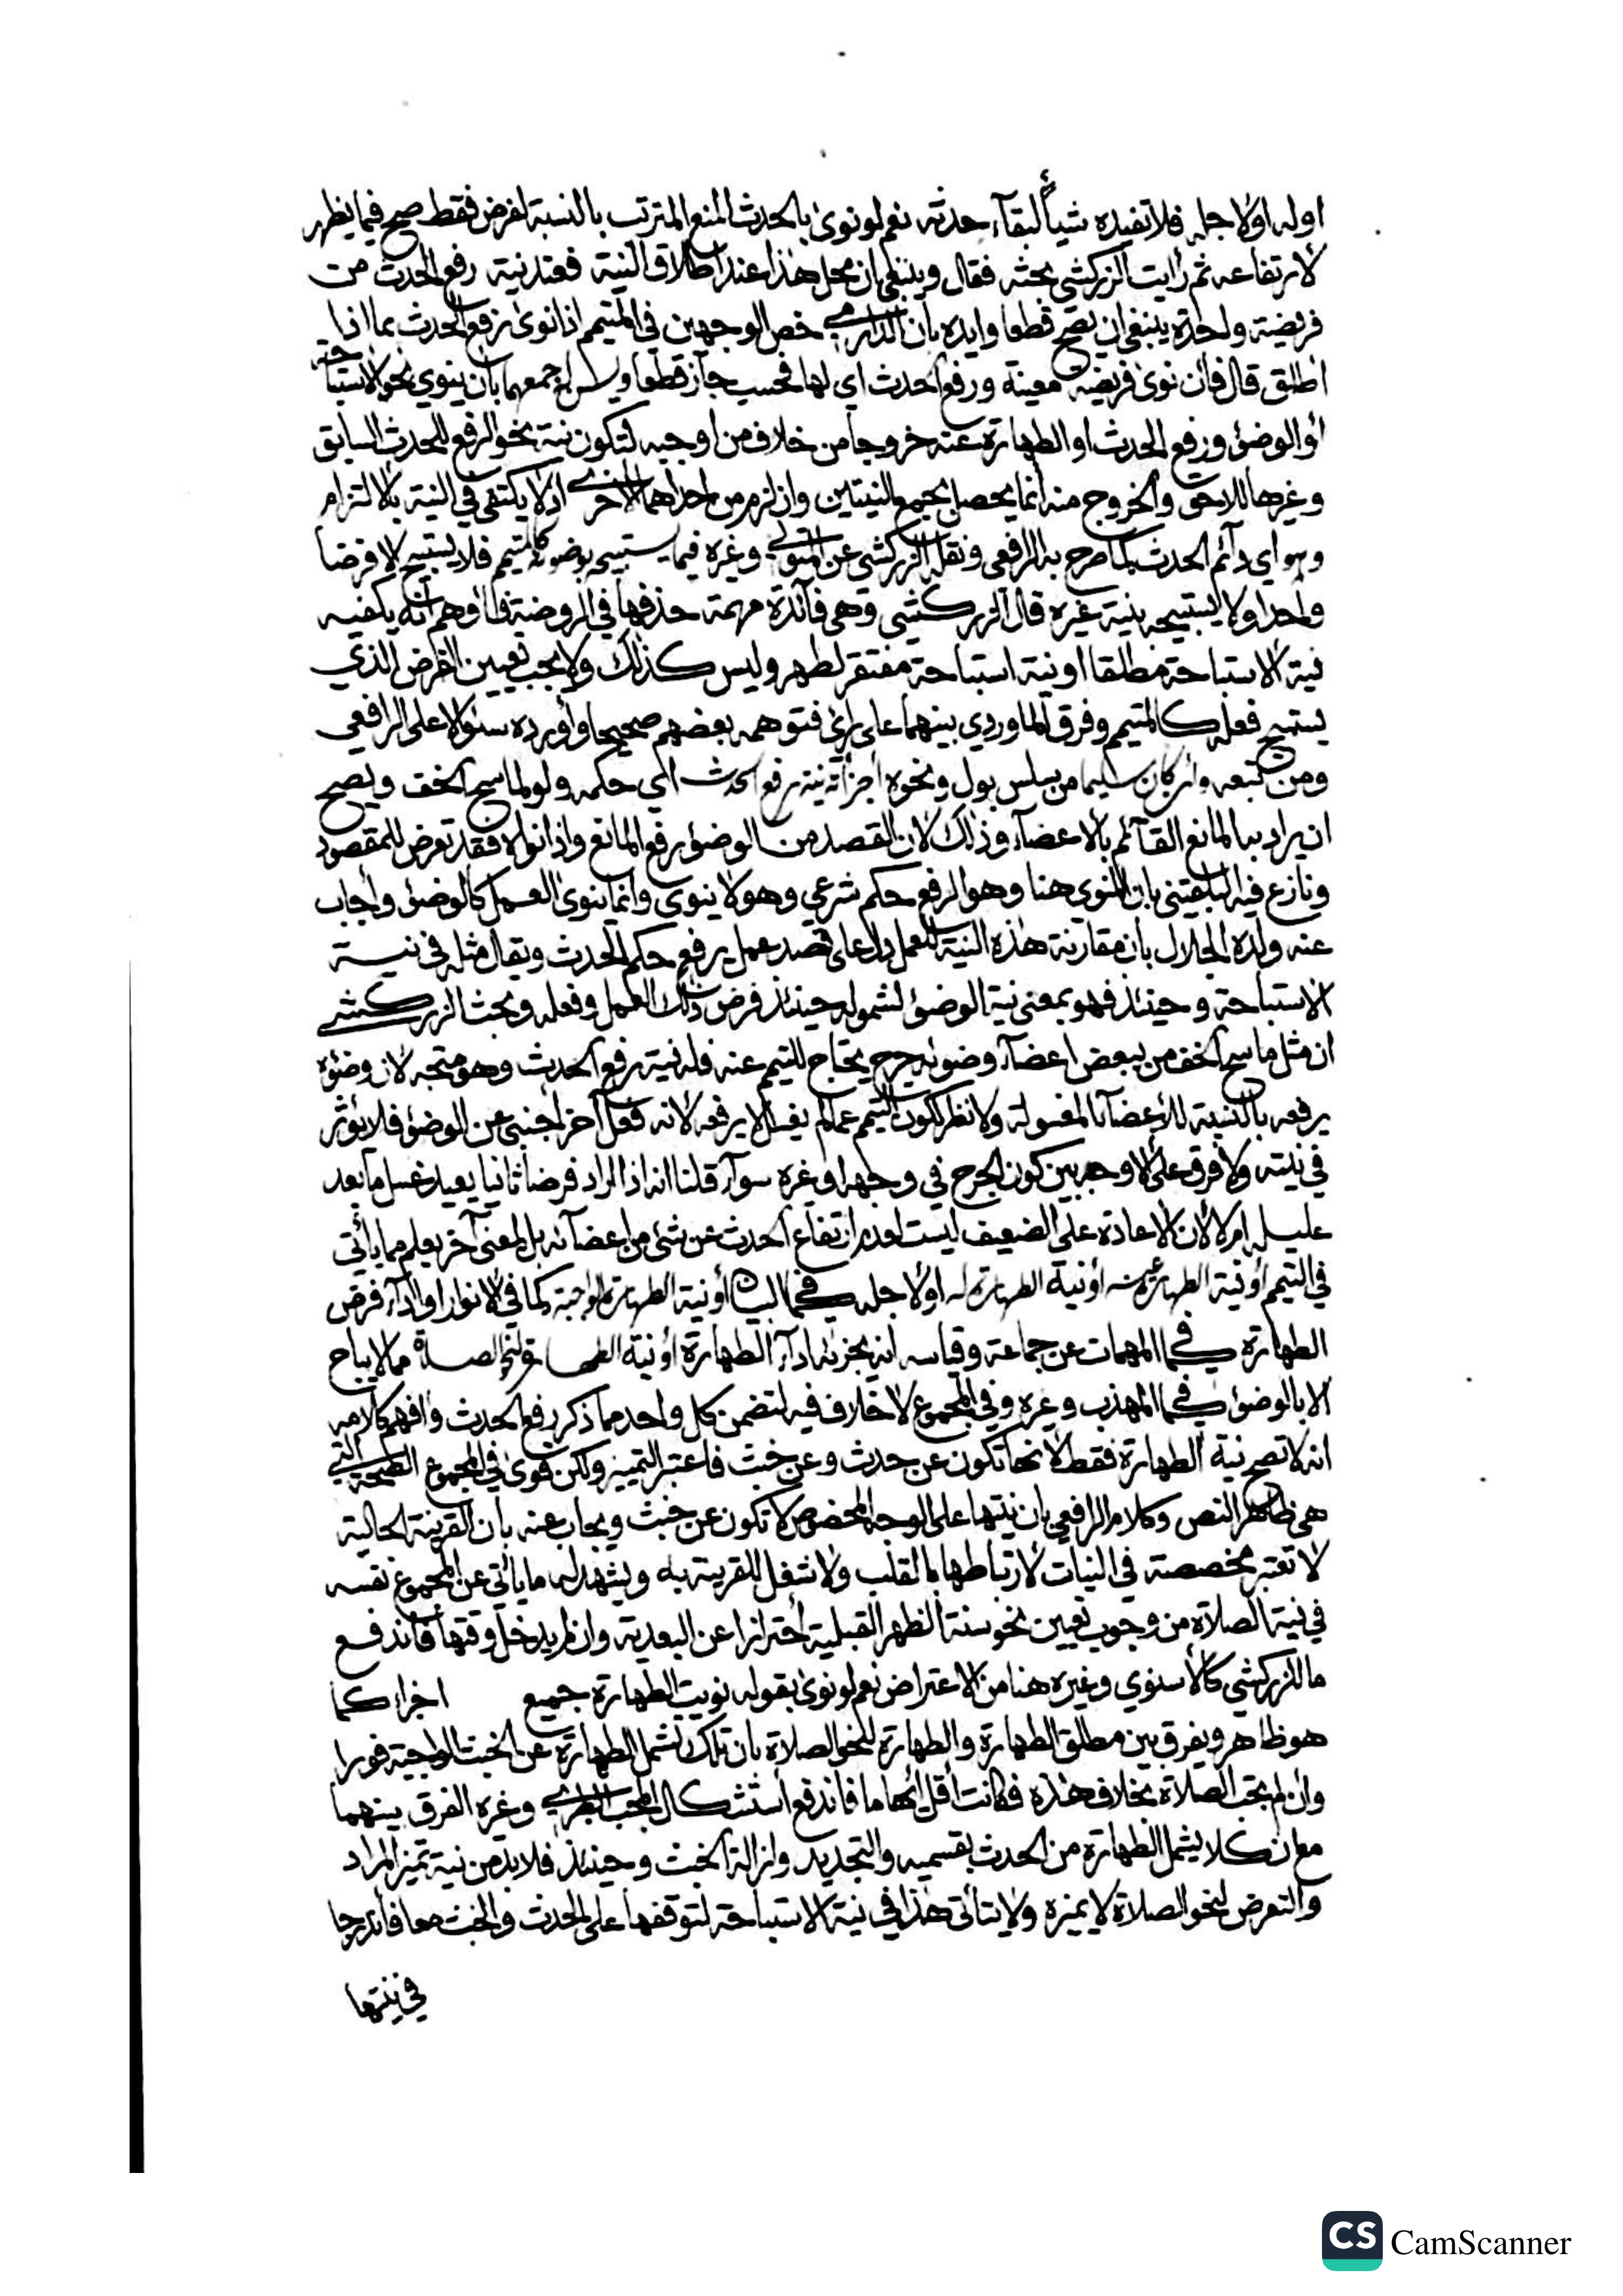 او له او لاجله فلا تفيده شيأ لبقآء حدثه نعم لو نوى بالحدث المنع المترتب بالنسبة لفرض فقط صح فيما يظهر
لارتفاعه ثم رأيت الزركشي بحثه فقال وينبغي ان محل هذا عند اطلاق النية فعند نية رفع الحدث من
فريضة واحدة ينبغي ان يصح قطعا وايده بان الدارمي خص الوجهين في المتيمم اذا نوى رفع الحدث بما اذا
اطلق قال فان نوى فريضة معينة ورفع الحدث اي لها فحسب جاز قطعا ويسن جمعهما بان ينوي نحو الاستباحة
او الوضوء ورفع الحدث او الطهارة عنه خروجا من خلاف من اوجبه لتكون نية نحو الرفع للحدث السابق
وغيرها للاحق والخروج منه انما يحصل بجمع النيتين وان لزم من احداهما الاخرى اذ لا يكتفى في النية بالالتزام
وهو اي دآئم الحدث كما صرح به الرافعي ونقله الزركشي عن المتولي وغيره فيما يستبيحه بوضوئه كالمتيمم فلا يستبيح الا فرضا
واحدا ولا يستبيحه بنية غيره قال الزركشي وهي فآئدة مهمة حذفها في الروضة فاوهم انه يكفيه
نية الاستباحة مطلقا او نية استباحة مفتقر لطهر وليس كذلك ولا يجب تعيين الفرض الذي
يستبيح فعله كالمتيمم وفرق الماوردي بينهما على رأي فتوهمه بعضهم صحيحا واورده سئوالا على الرافعي
ومن تبعه وان كان سليما من سلس بول ونحوه أجزأته نية رفع الحدث اي حكمه ولو لماسح الخف ويصح
ان يراد به المانع القآئم بالاعضآء وذلك لان القصد من الوضوء رفع المانع واذا نواه فقد تعرض للمقصود
ونازع فيه البلقيني بان المنوى هنا وهو الرفع حكم شرعي وهو لا ينوى وانما ينوى العمل كالوضوء واجاب
عنه ولده الجلال بان مقارنة هذه النية للعمل دل على قصد عمل يرفع حكم الحدث ويقال مثله في نية
الاستباحة وحينئذ فهو بمعنى نية الوضوء لشموله حينئذ فرض ذلك العمل وفعله وبحث الزركشي
ان مثل ماسح الخف من ببعض اعضآء وضوئه جرح يحتاج للتيمم عنه فله نية رفع الحدث وهو متجه لان وضوئه
يرفعه بالنسبة للاعضآء المغسولة ولا نظر لكون التيمم عما لم يغسل لا يرفعه لانه فعل آخر اجنبي عن الوضوء فلا يؤثر
في نيته ولا فرق على الاوجه بين كون الجرح في وجهه او غيره سوآء قلنا انه اذا اراد فرضا ثانيا يعيد غسل ما بعد
عليله ام لا لان الاعادة على الضعيف ليست لعدم ارتفاع الحدث عن شئ من اعضآئه بل لمعنى آخر يعلم مما يأتي
في التيمم أو نية الطهارة عنه أو نية الطهارة له او لاجله كما في البيان أو نية الطهارة الواجبة كما في الانوار او ادآء فرض
الطهارة كما في المهمات عن جماعة وقياسه انه يجزئه ادآء الطهارة او نية الطهارة لنحو الصلاة مما لا يباح
الا بالوضوء كما في المهذب وغيره وفي المجموع لا خلاف فيه لتضمن كل واحد مما ذكر رفع الحدث وافهم كلامه
انه لا تصح نية الطهارة فقط لانها تكون عن حدث وعن خبث فاعتبر التمييز ولكن قوى في المجموع الصحة التي
هي ظاهر النص وكلام الرافعي بان نيتها على الوجه المخصوص لا تكون عن خبث ويجاب عنه بان القرينة الحالية
لا تعتبر مخصصة في النيات لارتباطها بالقلب ولا شغل للقرينة به ويشهد له ما يأتي عن المجموع نفسه
في نية الصلاة من وجوب تعيين نحو سنة الظهر القبلية احترازا عن البعدية وان لم يدخل وقتها فاندفع
ما للزركشي كالاسنوي وغيره هنا من الاعتراض نعم لو نوى بقوله نويت الطهارة جميع اجزاء كما
هو ظاهر ويفرق بين مطلق الطهارة والطهارة لنحو الصلاة بان تلك تشمل الطهارة عن الخبث الواجبة فورا
وان لم تجب الصلاة بخلاف هذه فكانت أقل ابهاما فاندفع استشكال المحب الطبري وغيره الفرق بينهما
مع ان كلا يشمل الطهارة من الحدث بقسميه والتجديد وازالة الخبث وحينئذ فلا بد من نية تميز المراد
والتعرض لنحو الصلاة لا يميزه ولا يتأتى هذا في نية الاستباحة لتوقفها على الحدث والخبث معا فاندرجا
في نيتها
CS CamScanner